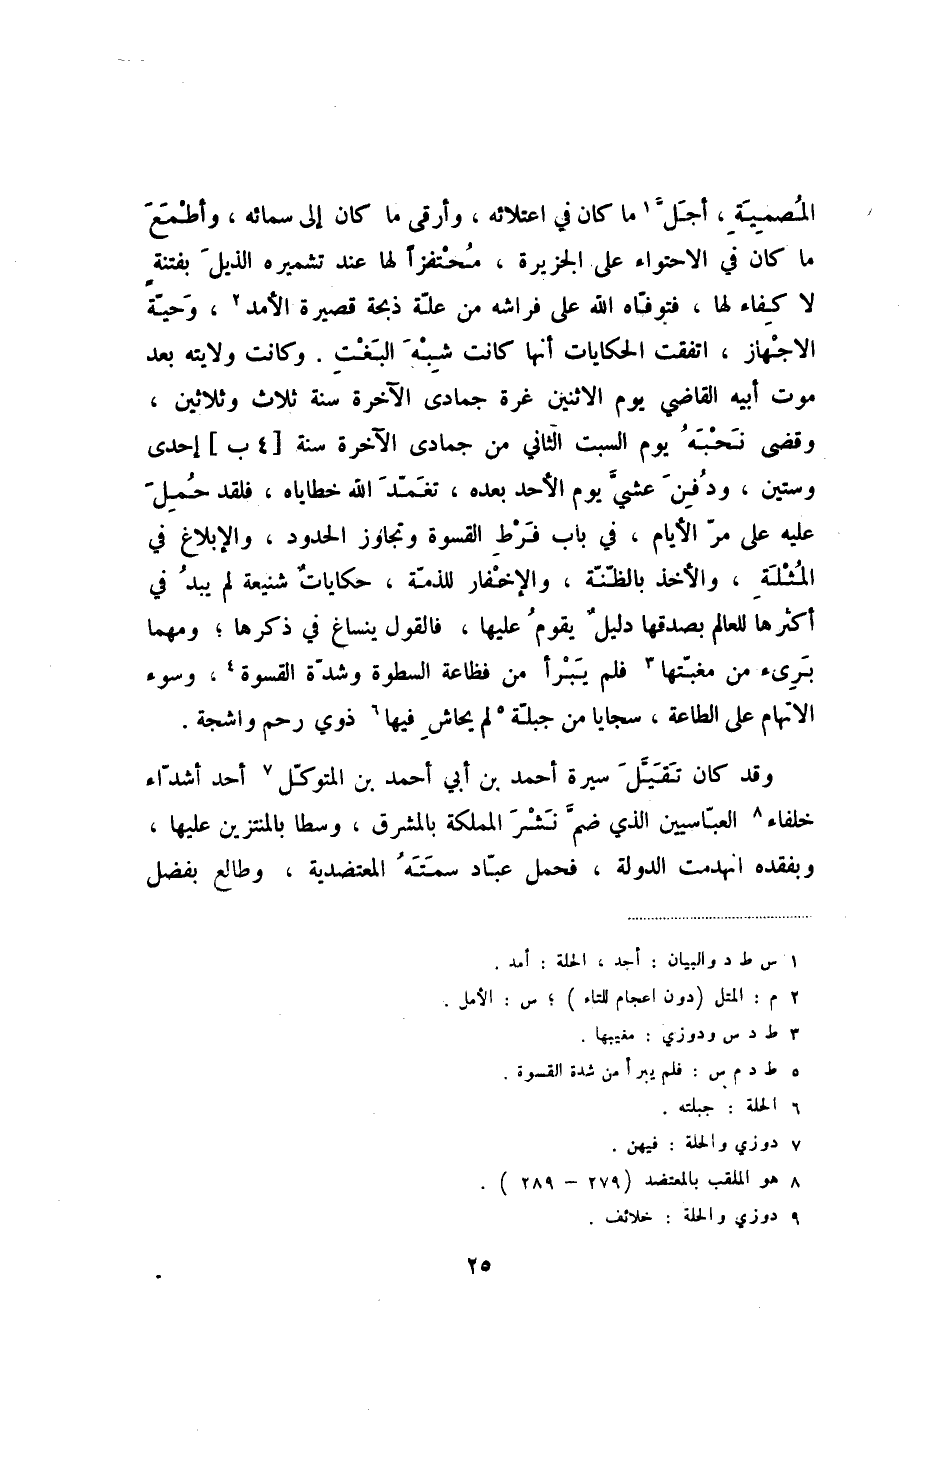 المُصمِيَةِ ، أجَلَّ ١ ما كان في اعتلائه ، وأرقى ما كان إلى سمائه ، وأطْمَعَ
ما كان في الاحتواء على الجزيرة ، مُحْتفزاً لها عند تشميره الذيلَ بفتنةٍ
لا كِفاء لها ، فتوفّاه الله على فراشه من علّة ذبحة قصيرة الأمد ٢ ، وَحِيّة
الاجْهاز ، اتفقت الحكايات أنها كانت شِبْهَ البَغْتِ . وكانت ولايته بعد
موت أبيه القاضي يوم الاثنين غرة جمادى الآخرة سنة ثلاث وثلاثين ،
وقضى نَحْبَهُ يوم السبت الثاني من جمادى الآخرة سنة [ ٤ ب ] إحدى
وستين ، ودُفِنَ عشيَّ يوم الأحد بعده ، تغَمّدَ الله خطاياه ، فلقد حُمِلَ
عليه على مرّ الأيام ، في باب فَرْطِ القسوة وتجاوز الحدود ، والإبلاغ في
المُثْلَةِ ، والأخذ بالظّنّة ، والإخْفار للذمّة ، حكاياتٌ شنيعة لم يبدُ في
أكثرها للعالم بصدقها دليلٌ يقومُ عليها ، فالقول ينساغ في ذكرها ؛ ومهما
بَرِىء من مغبّتها ٣ فلم يَبْرأ من فظاعة السطوة وشدّة القسوة ٤ ، وسوء
الاتهام على الطاعة ، سجايا من جبلّة ٥ لم يحاشِ فيها ٦ ذوي رحم واشجة .
وقد كان تَقَيَّلَ سيرة أحمد بن أبي أحمد بن المتوكّل ٧ أحد أشدّاء
خلفاء ٨ العبّاسيين الذي ضمَّ نَشْرَ المملكة بالمشرق ، وسطا بالمنتزين عليها ،
وبفقده انهدمت الدولة ، فحمل عبّاد سمَتَهُ المعتضدية ، وطالع بفضل
١ س ط د والبيان : أجد ، الحلة : أمد .
٢ م : المتل ( دون اعجام للتاء ) ؛ س : الأمل .
٣ ط د س ودوزي : مغيبها .
٥ ط د م س : فلم يبرأ من شدة القسوة .
٦ الحلة : جبلته .
٧ دوزي والحلة : فيهن .
٨ هو الملقب بالمعتضد ( ٢٧٩ – ٢٨٩ ) .
٩ دوزي والحلة : خلائف .
٢٥